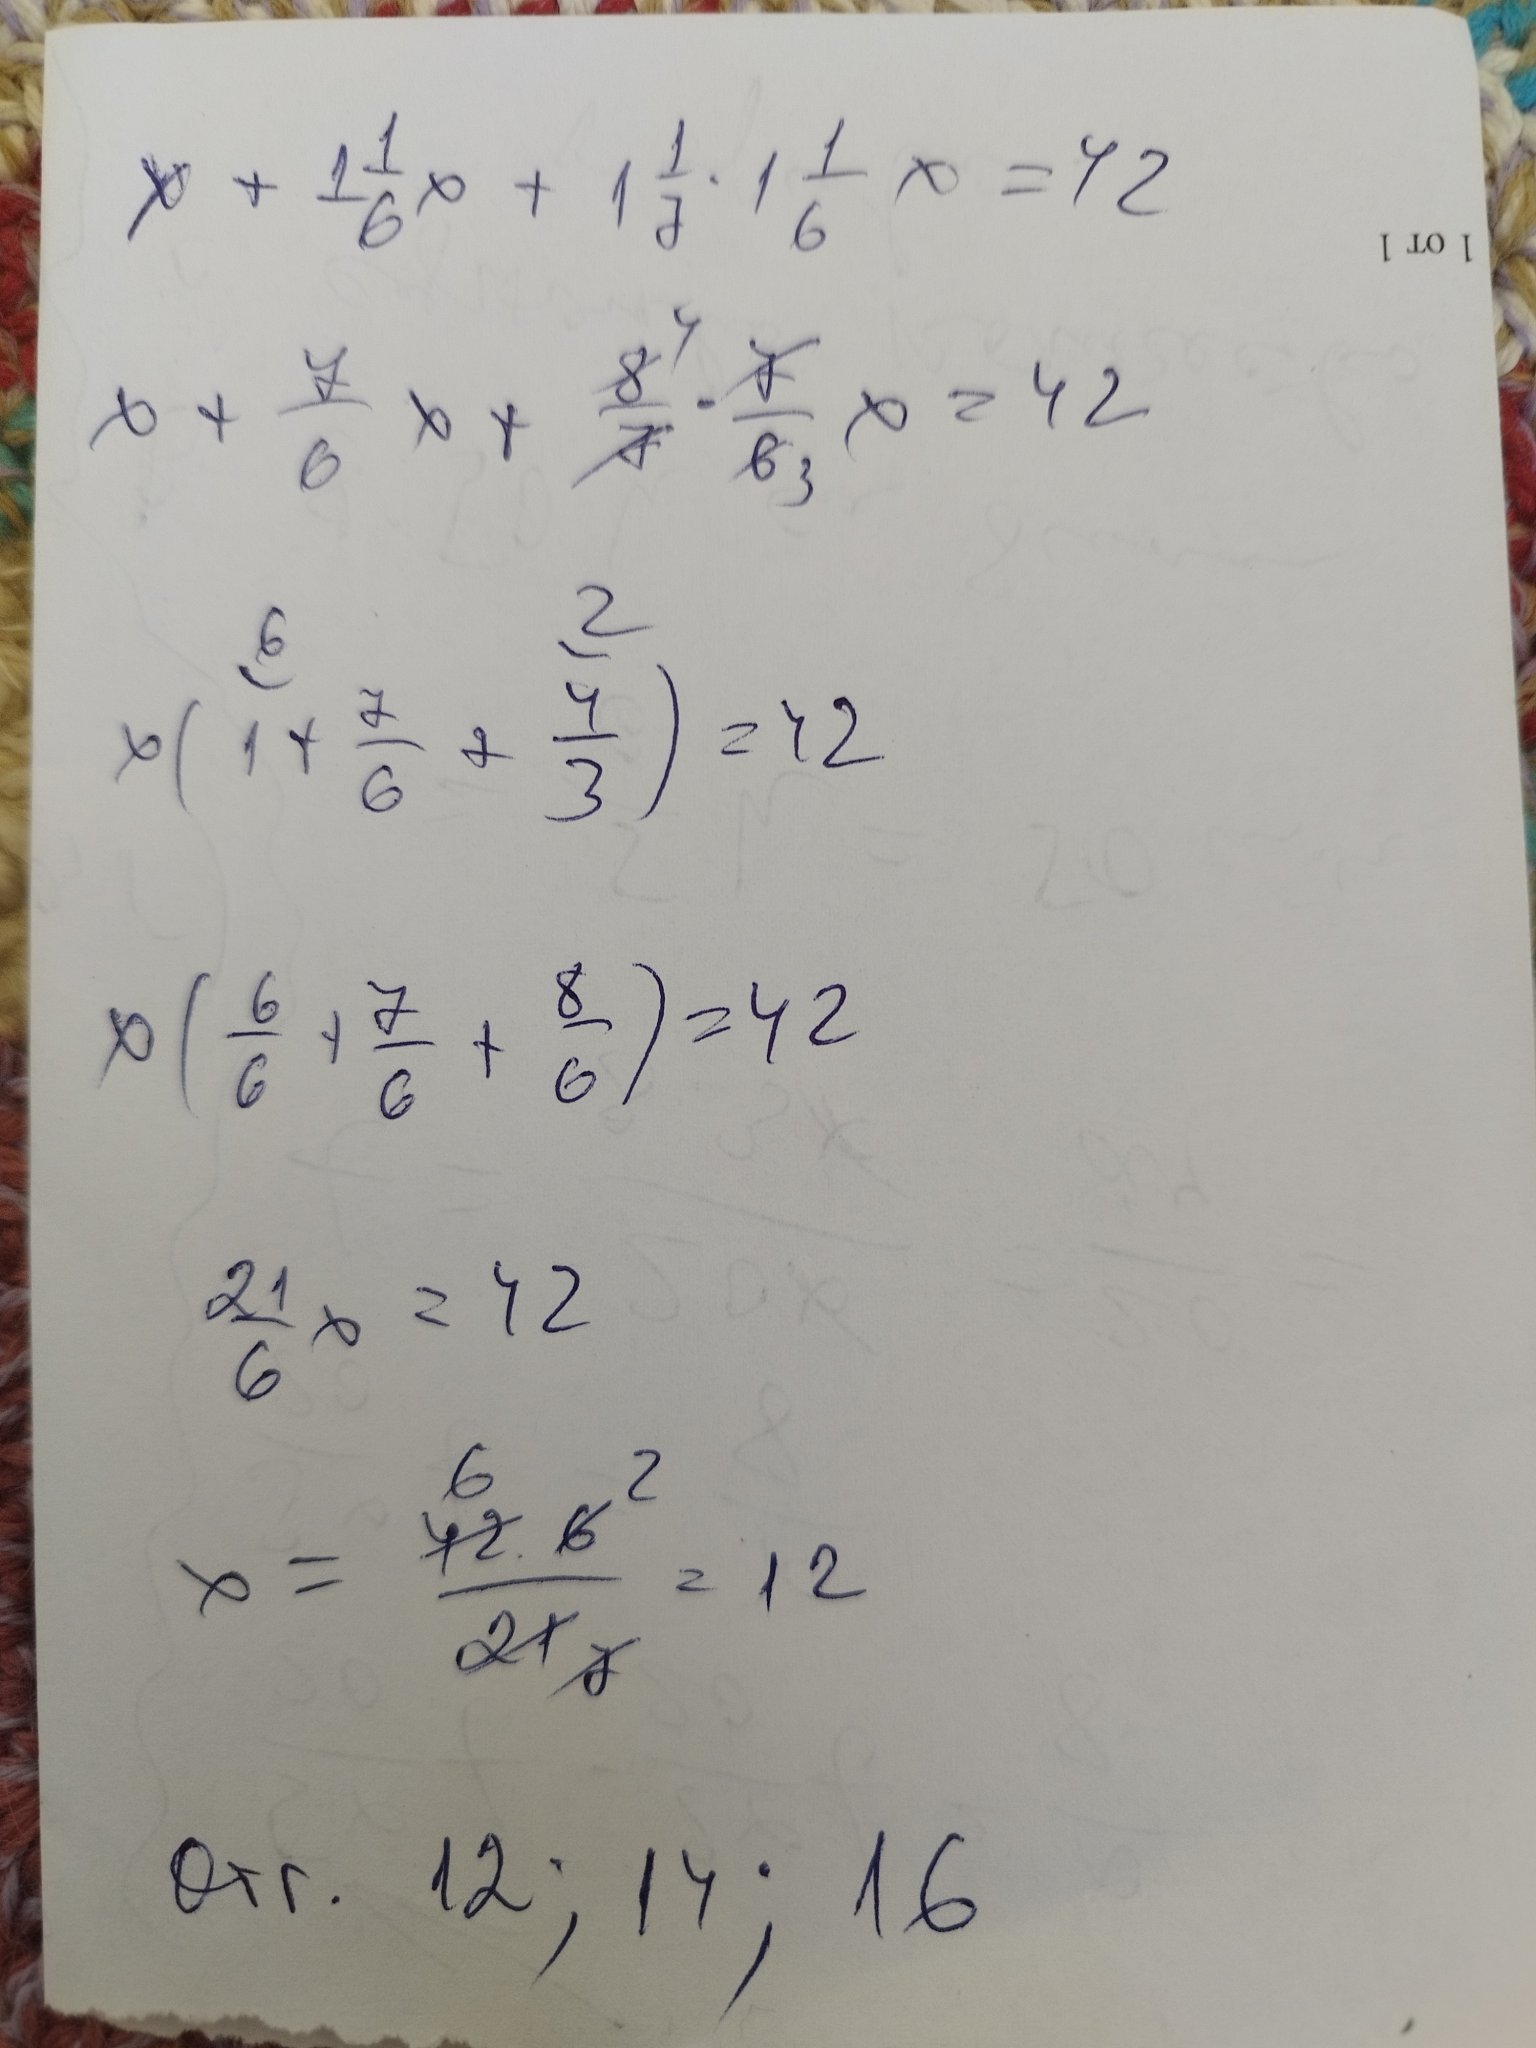 x + 1 1/6 x + 1 1/7 · 1 1/6 x = 42
1 от 1
x + 7/6 x + 8/7 · 7/6 x = 42
4
3
6 2
x(1 + 7/6 + 4/3) = 42
x(6/6 + 7/6 + 8/6) = 42
21/6 x = 42
6 2
x = 42 · 6 / 21 = 12
7
Отг. 12; 14; 16